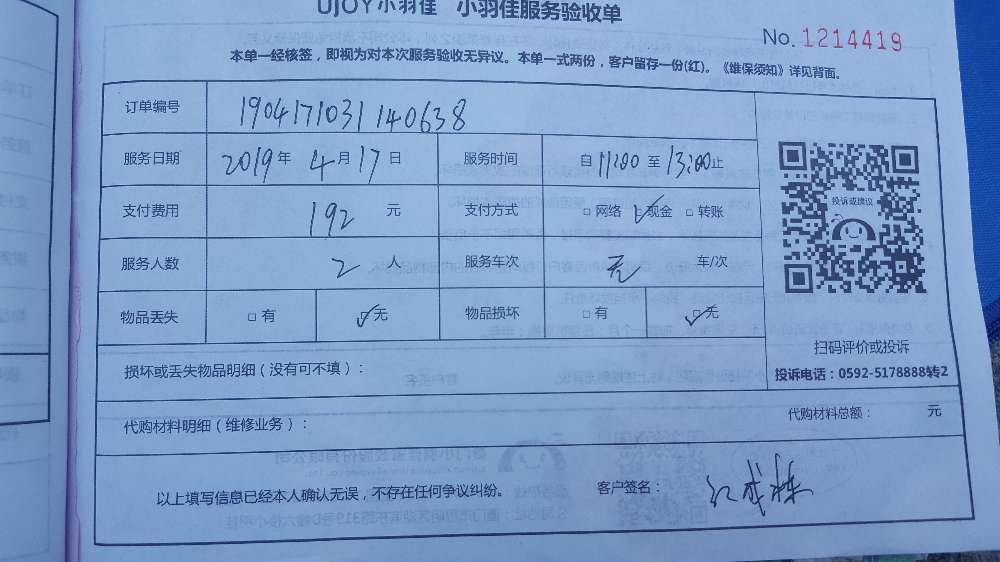 UJOY小羽佳 小羽佳服务验收单
No. 1214419
本单一经核签，即视为对本次服务验收无异议。本单一式两份，客户留存一份(红)。《维保须知》详见背面。
订单编号 190417103114063​8
服务日期 2019年4月17日 服务时间 自11:00至13:00止
支付费用 192元 支付方式 □网络 ☑现金 □转账
服务人数 2人 服务车次 无 车/次
物品丢失 □有 ☑无 物品损坏 □有 ☑无
投诉或建议
扫码评价或投诉
投诉电话：0592-5178888转2
损坏或丢失物品明细（没有可不填）：
代购材料明细（维修业务）： 代购材料总额： 元
以上填写信息已经本人确认无误，不存在任何争议纠纷。 客户签名：